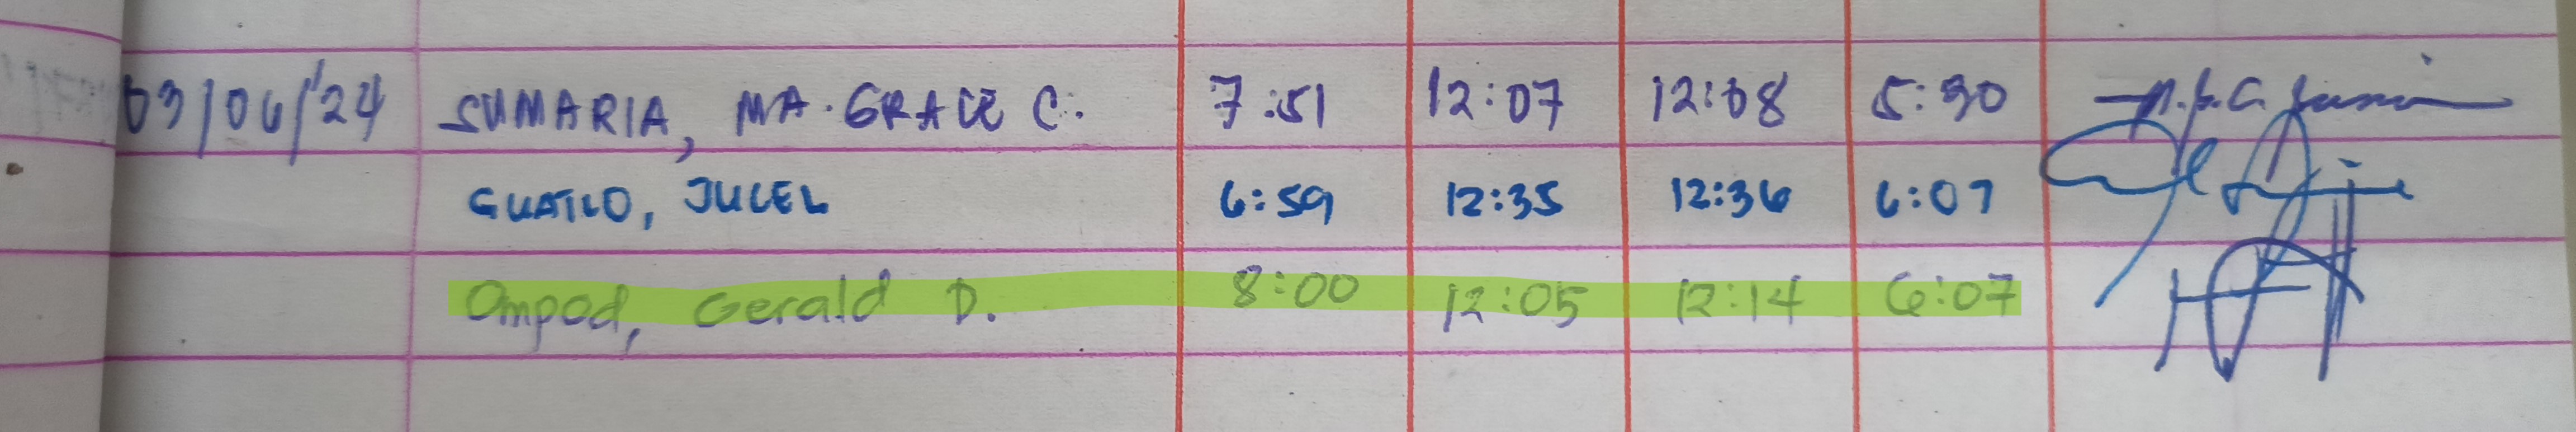 03/06/24 SUMARIA, MA. GRACE C. 7:51 12:07 12:08 5:30
GUATLO, JUCEL 6:59 12:35 12:36 6:07
Ompod, Gerald D. 8:00 12:05 12:14 6:07